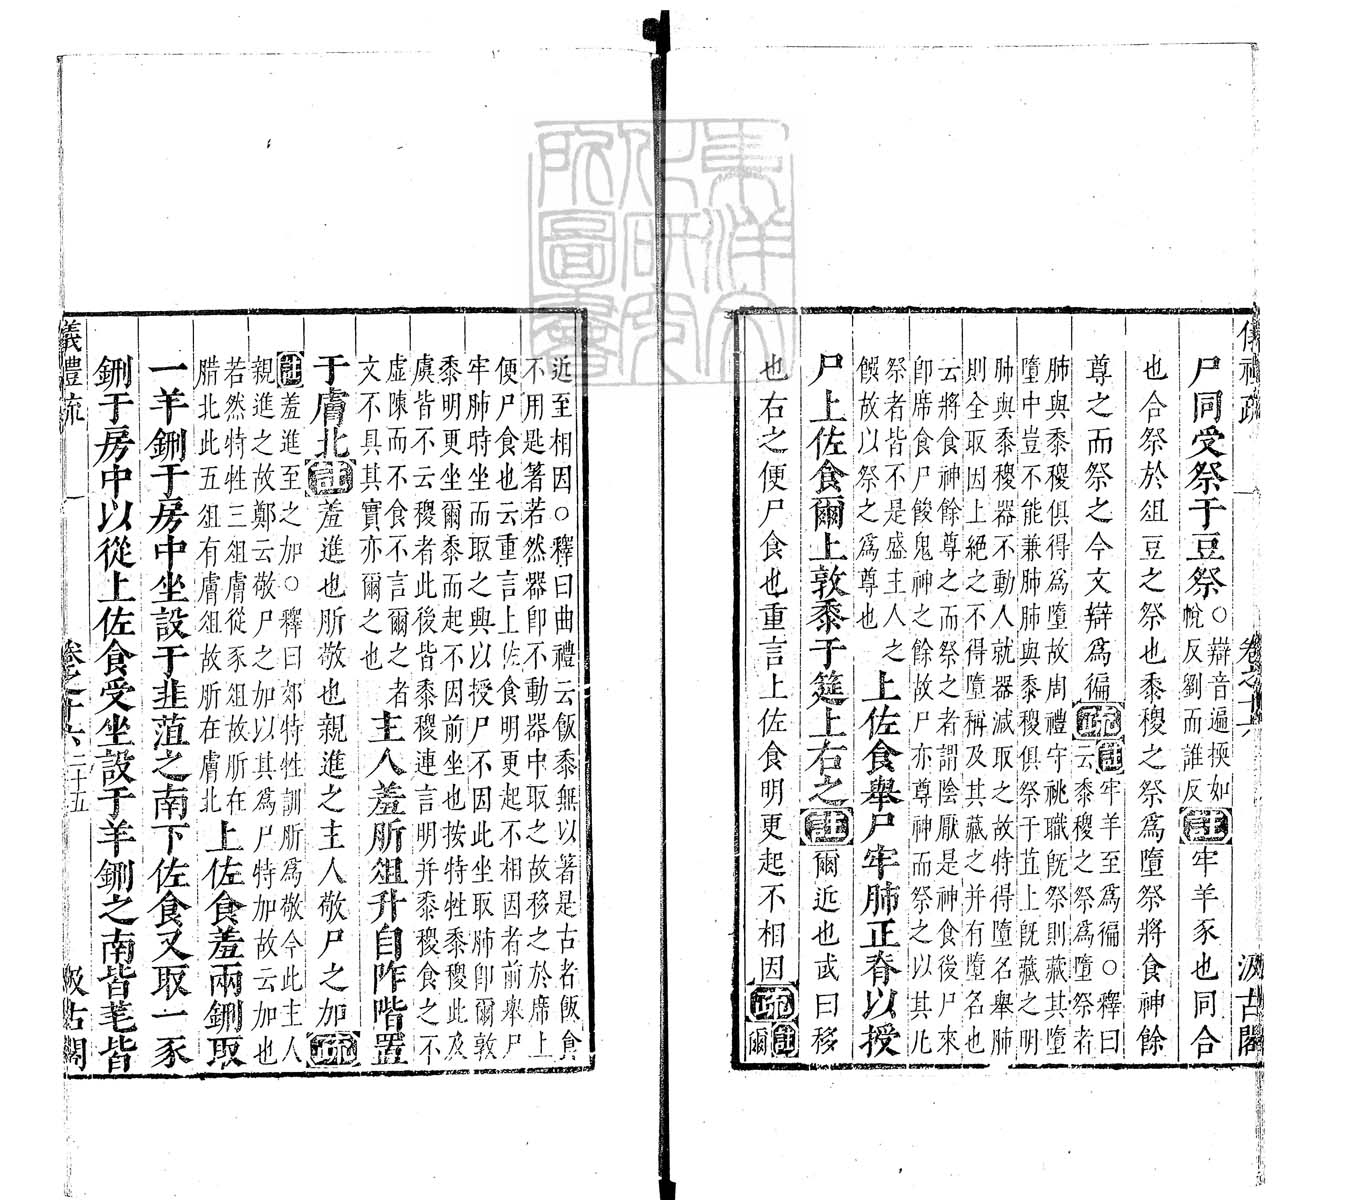 儀禮疏 卷之十六 汲古閣
尸同受祭于豆祭○辯音遍㨎如
帨反劉而誰反註牢羊豕也同合
也合祭於俎豆之祭也黍稷之祭爲墮祭將食神餘
尊之而祭之今文辯爲徧疏註牢羊至爲徧○釋曰
云黍稷之祭爲墮祭者
肺與黍稷俱得爲墮故周禮守祧職旣祭則藏其墮
墮中豈不能兼肺肺與黍稷俱祭于苴上旣藏之明
肺與黍稷器不動人就器減取之故特得墮名舉肺
則全取因上絕之不得墮稱及其藏之并有墮名也
云將食神餘尊之而祭之者謂陰厭是神食後尸來
卽席食尸餕鬼神之餘故尸亦尊神而祭之以其凡
祭者皆不是盛主人之
餕故以祭之爲尊也上佐食舉尸牢肺正脊以授
尸上佐食爾上敦黍于筵上右之註爾近也或曰移
也右之便尸食也重言上佐食明更起不相因疏註爾
近至相因○釋曰曲禮云飯黍無以箸是古者飯食
不用匙箸若然器卽不動器中取之故移之於席上
便尸食也云重言上佐食明更起不相因者前舉尸
牢肺時坐而取之興以授尸不因此坐取肺卽爾敦
黍明更坐爾黍而起不因前坐也按特牲黍稷此及
虞皆不云稷者此後皆黍稷連言明并黍稷食之不
虛陳而不食不言爾之者
文不具其實亦爾之也主人羞肵俎升自阼階置
于膚北註羞進也肵敬也親進之主人敬尸之加疏
註羞進至之加○釋曰郊特牲訓肵爲敬今此主人
親進之故鄭云敬尸之加以其爲尸特加故云加也
若然特牲三俎膚從豕俎故肵在
腊北此五俎有膚俎故肵在膚北上佐食羞兩鉶取
一羊鉶于房中坐設于韭菹之南下佐食又取一豕
鉶于房中以從上佐食受坐設于羊鉶之南皆芼皆
儀禮疏 卷之十六 二十五 汲古閣
東洋文化研究所圖書